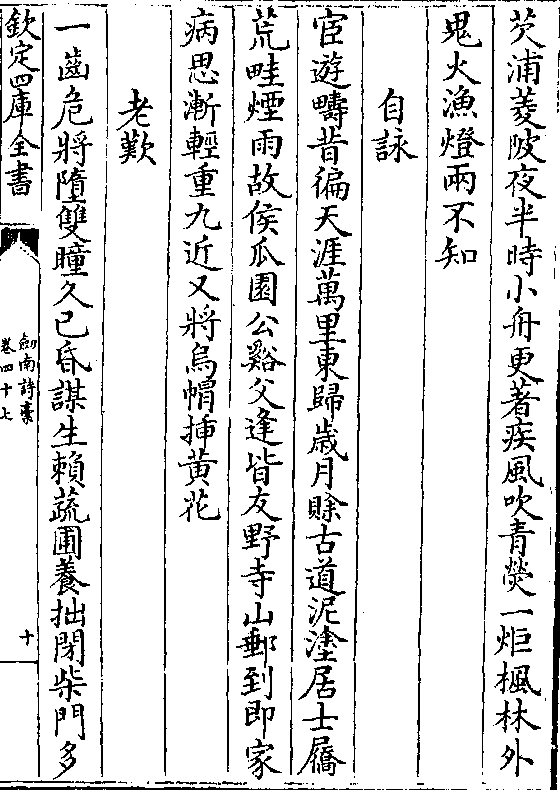 芡浦菱陂夜半時小舟更著疾風吹青熒一炬楓林外
鬼火漁燈兩不知
自詠
宦遊疇昔徧天涯萬里東歸歲月賖古道泥塗居士屩
荒畦煙雨故侯瓜園公谿父逢皆友野寺山郵到即家
病思漸輕重九近又將烏帽揷黃花
老歎
一齒危將墮雙瞳久已昏謀生賴蔬圃養拙閉柴門多
欽定四庫全書
劒南詩稾
卷四十七
十